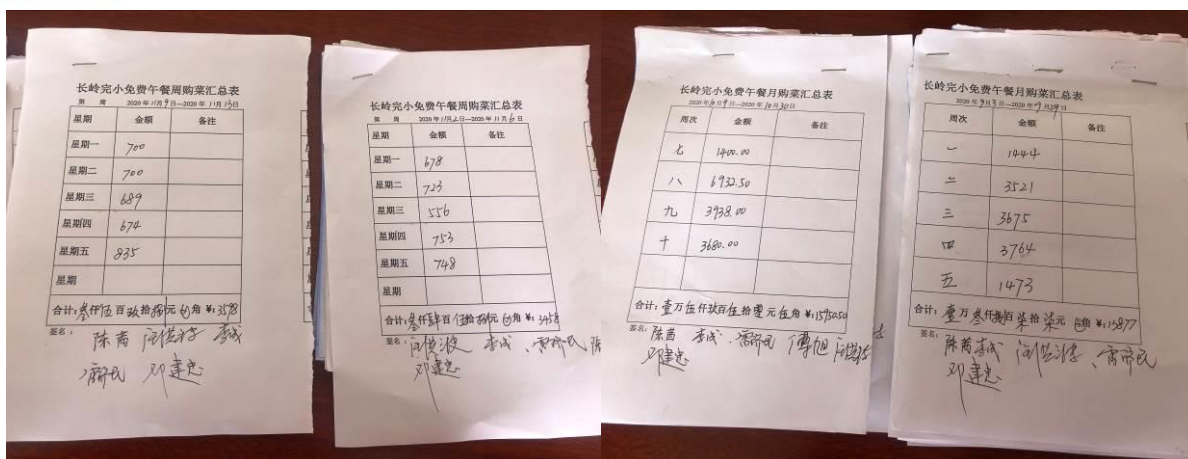 长岭完小免费午餐周购菜汇总表
第 周 2020年11月9日—2020年11月13日
星期 金额 备注
星期一 700
星期二 700
星期三 689
星期四 674
星期五 835
星期
合计:叁仟伍百玖拾捌元 角 ¥:3598
签名: 陈茜 李成
雷济民 邓建忠
长岭完小免费午餐周购菜汇总表
第 周 2020年11月2日—2020年11月6日
星期 金额 备注
星期一 678
星期二 723
星期三 556
星期四 753
星期五 748
星期
合计:叁仟肆百伍拾捌元 角 ¥:3458
签名: 李成 雷济民 陈
邓建忠
长岭完小免费午餐月购菜汇总表
2020年10月9日—2020年10月30日
周次 金额 备注
七 1400.00
八 6932.50
九 3938.00
十 3680.00
合计:壹万伍仟玖百伍拾零元伍角 ¥:15950.50
签名: 陈茜 李成 雷济民 傅旭
邓建忠
长岭完小免费午餐月购菜汇总表
2020年9月3日—2020年9月29日
周次 金额 备注
一 1444
二 3521
三 3675
四 3764
五 1473
合计:壹万叁仟捌百柒拾柒元 角 ¥:13877
签名: 陈茜 李成 雷济民
邓建忠